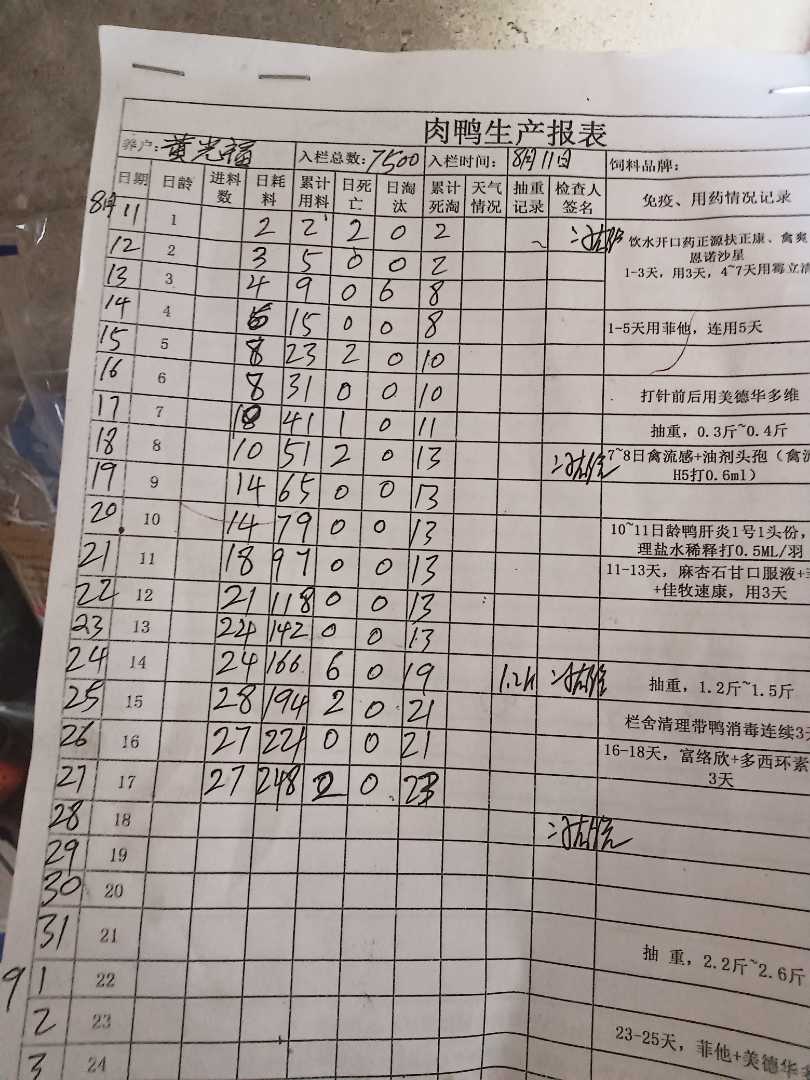 肉鸭生产报表
养户：黄光福 入栏总数：7500 入栏时间：8月11日 饲料品牌：
日期 日龄 进料数 日耗料 累计用料 日死亡 日淘汰 累计死淘 天气情况 抽重记录 检查人签名 免疫、用药情况记录
8月11 1 2 2 2 0 2 饮水开口药正源扶正康、禽爽
恩诺沙星
12 2 3 5 0 0 2 1-3天，用3天，4~7天用霉立清
13 3 4 9 0 6 8
14 4 6 15 0 0 8 1-5天用菲他，连用5天
15 5 8 23 2 0 10
16 6 8 31 0 0 10 打针前后用美德华多维
17 7 10 41 1 0 11 抽重，0.3斤~0.4斤
18 8 10 51 2 0 13 7~8日禽流感+油剂头孢（禽流
H5打0.6ml）
19 9 14 65 0 0 13
20 10 14 79 0 0 13 10~11日龄鸭肝炎1号1头份，
理盐水稀释打0.5ML/羽
21 11 18 97 0 0 13 11-13天，麻杏石甘口服液+
+佳牧速康，用3天
22 12 21 118 0 0 13
23 13 24 142 0 0 13
24 14 24 166 6 0 19 1.2斤 抽重，1.2斤~1.5斤
25 15 28 194 2 0 21 栏舍清理带鸭消毒连续3天
26 16 27 221 0 0 21 16-18天，富络欣+多西环素
3天
27 17 27 248 2 0 23
28 18
29 19
30 20
31 21 抽 重，2.2斤~2.6斤
9 1 22
2 23 23-25天，菲他+美德华多
3 24